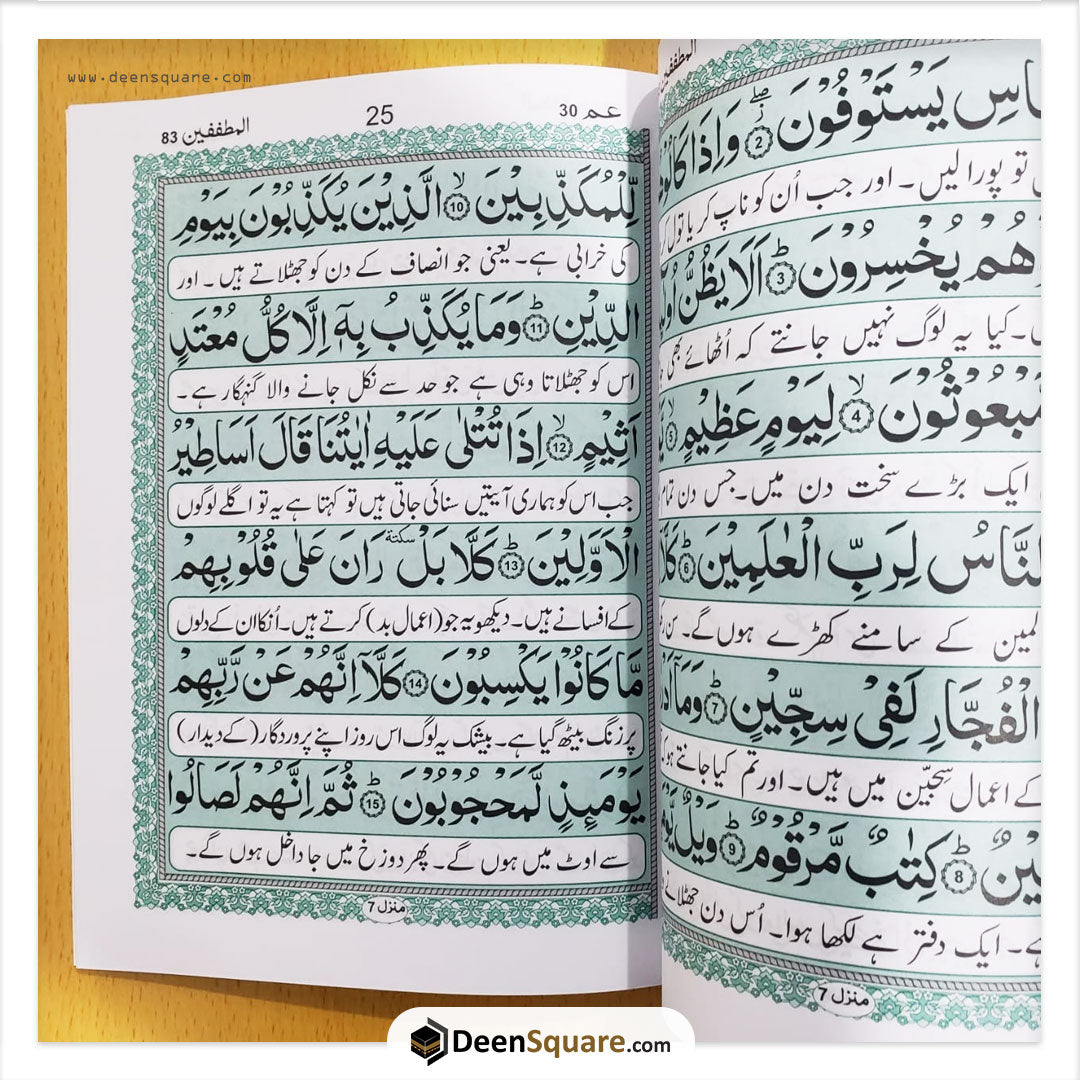 www.deensquare.com
المطففين
ـاسِ يَسْتَوْفُوْنَ ۖ2 وَاِذَا كَالُوْ
تو پورا لیں۔ اور جب اُن کو ناپ کر یا تول
هُمْ يُخْسِرُوْنَ ؕ3 اَلَا يَظُنُّ اُولٰٓ
۔ کیا یہ لوگ نہیں جانتے کہ اُٹھائے بھی
مَّبْعُوْثُوْنَ ۙ4 لِيَوْمٍ عَظِيْمٍ ۙ5
ایک بڑے سخت دن میں۔ جس دن تمام
النَّاسُ لِرَبِّ الْعٰلَمِيْنَ ؕ6 كَلَّا
لمین کے سامنے کھڑے ہوں گے۔ سن
الْفُجَّارِ لَفِيْ سِجِّيْنٍ ؕ7 وَمَاۤ اَدْرٰ
کے اعمال سِجّین میں ہیں۔ اور تم کیا جانتے ہو
يْنٌ ؕ8 كِتٰبٌ مَّرْقُوْمٌ ؕ9 وَيْلٌ يَّوْمَ
ہے۔ ایک دفتر ہے لکھا ہوا۔ اُس دن جھٹلانے
منزل 7
عم 30 25 المطففين 83
لِّلْمُكَذِّبِيْنَ ۙ10 الَّذِيْنَ يُكَذِّبُوْنَ بِيَوْمِ
کی خرابی ہے۔ یعنی جو انصاف کے دن کو جھٹلاتے ہیں۔ اور
الدِّيْنِ ؕ11 وَمَا يُكَذِّبُ بِهٖۤ اِلَّا كُلُّ مُعْتَدٍ
اس کو جھٹلاتا وہی ہے جو حد سے نکل جانے والا گنہگار ہے۔
اَثِيْمٍ ۙ12 اِذَا تُتْلٰى عَلَيْهِ اٰيٰتُنَا قَالَ اَسَاطِيْرُ
جب اس کو ہماری آیتیں سنائی جاتی ہیں تو کہتا ہے یہ تو اگلے لوگوں
الْاَوَّلِيْنَ ؕ13 كَلَّا بَلْ سكتة رَانَ عَلٰى قُلُوْبِهِمْ
کے افسانے ہیں۔ دیکھو یہ جو (اعمال بد) کرتے ہیں۔ اُنکا ان کے دلوں
مَّا كَانُوْا يَكْسِبُوْنَ 14 كَلَّاۤ اِنَّهُمْ عَنْ رَّبِّهِمْ
پر زنگ بیٹھ گیا ہے۔ بیشک یہ لوگ اس روز اپنے پروردگار (کے دیدار)
يَوْمَىِٕذٍ لَّمَحْجُوْبُوْنَ ؕ15 ثُمَّ اِنَّهُمْ لَصَالُوا
سے اوٹ میں ہوں گے۔ پھر دوزخ میں جا داخل ہوں گے۔
منزل 7
DeenSquare.com